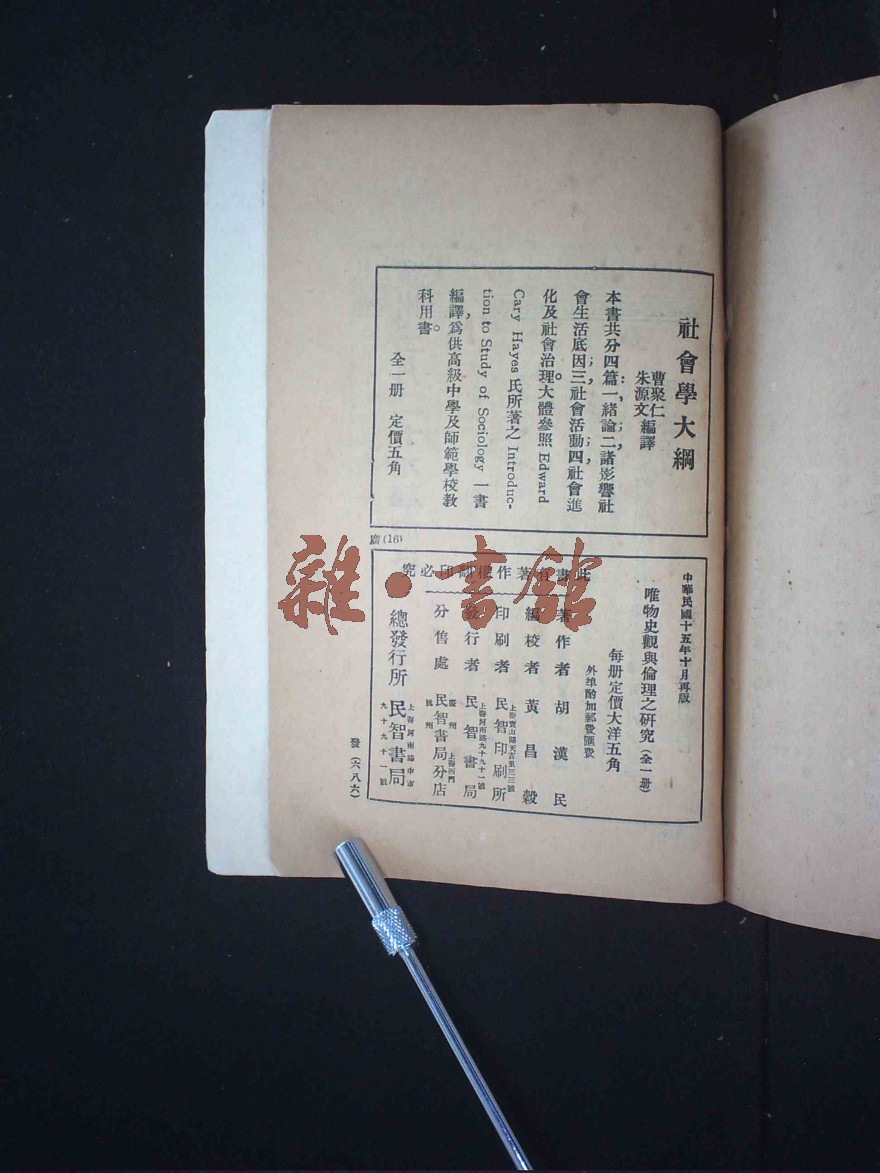 社會學大綱
曹聚仁
朱源文
編譯
本書共分四篇：一，緒論；二，諸影響社
會生活底因；三，社會活動；四，社會進
化及社會治理。大體參照 Edward
Cary Hayes 氏所著之 Introduc-
tion to Study of Sociology 一書
編譯，爲供高級中學及師範學校教
科用書。
全一册 定價五角
廣(16)
中華民國十五年十月再版
唯物史觀與倫理之研究 (全一册)
每册定價大洋五角
外埠酌加郵費匯費
著作者 胡漢民
編校者 黃昌穀
印刷者 上海寶山路天吉里三三號 民智印刷所
發行者 上海河南路九十九十一號 民智書局
分售處 民智書局分店
總發行所 上海河南路中市 九十九十一號 民智書局
此書有著作權翻印必究
發(六八六)
雜·書館